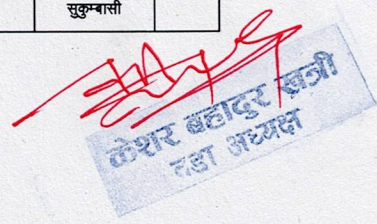 सुकुम्बासी
केशर बहादुर खत्री
वडा अध्यक्ष